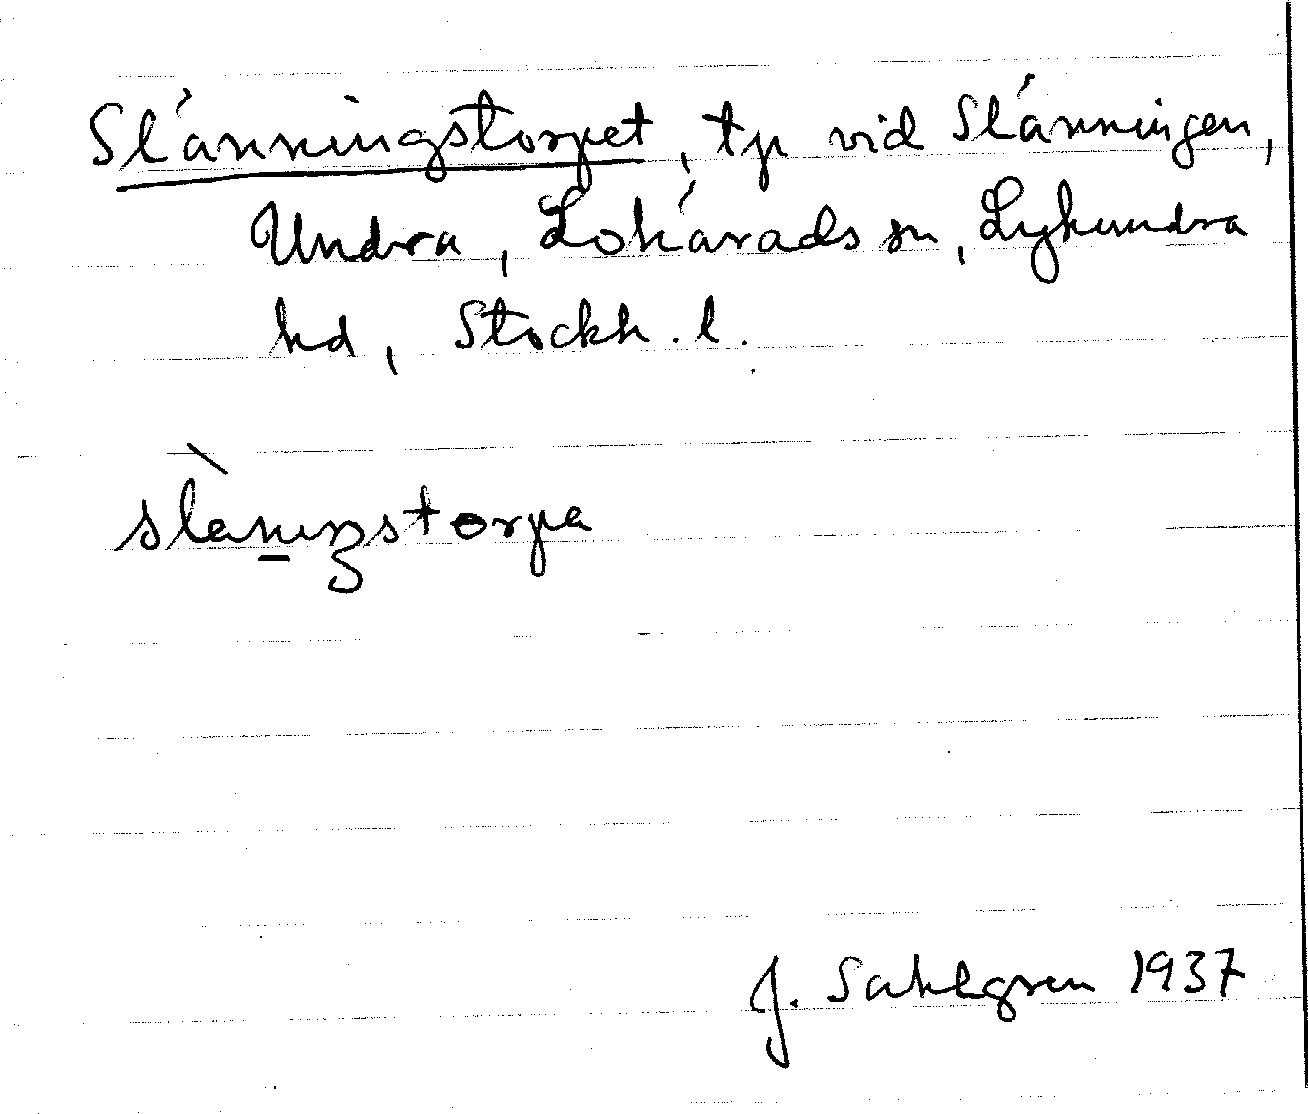 Slänningstorpet, tp vid Slänningen,
Undra, Lohärads sn, Lyhundra
hd, Stockh. l.
slànıŋstorpa
J. Sahlgren 1937